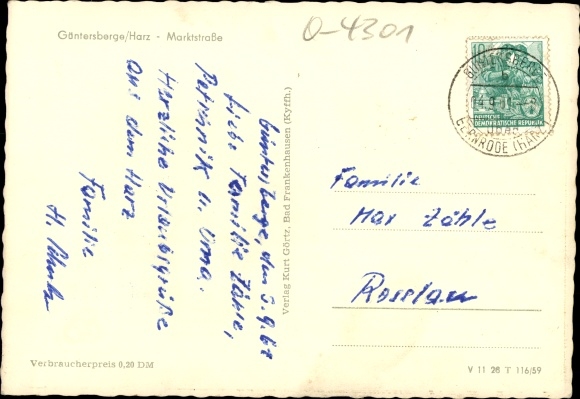 Güntersberge/Harz - Marktstraße
O-4301
10
DEUTSCHE
DEMOKRATISCHE REPUBLIK
GERNRODE (HARZ)
Güntersberge, den 3.9.61
Liebe Familie Zähle,
u. Oma.
Herzliche Urlaubsgrüße
aus dem Harz
Familie
H.
Verlag Kurt Görtz, Bad Frankenhausen (Kyffh.)
Familie
Max Zähle
Rosslau
Verbraucherpreis 0,20 DM
V 11 26 T 116/59